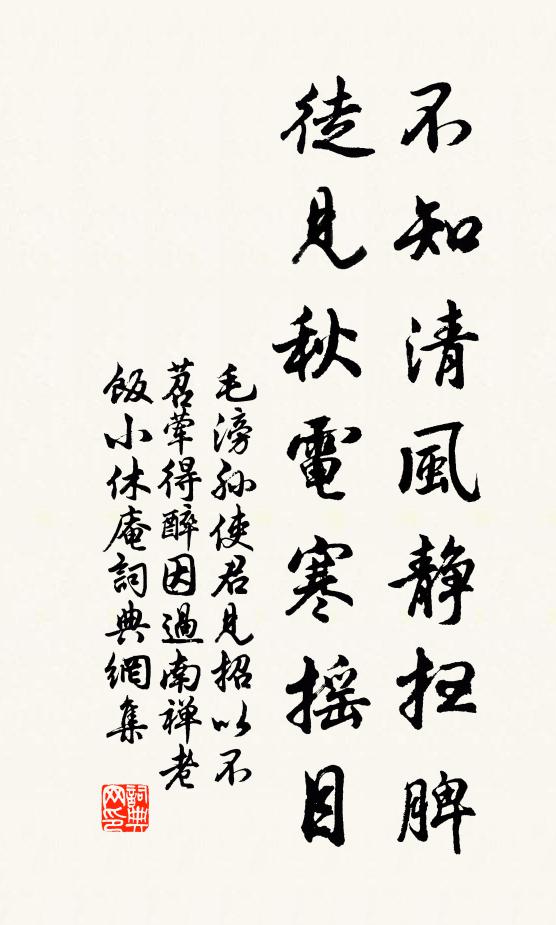 不知清風静扫脾
徒見秋電寒摇目
毛滂孙使君見招以不
茗荤得醉因過南禅老
飯小休庵詞典網集
詞典网印